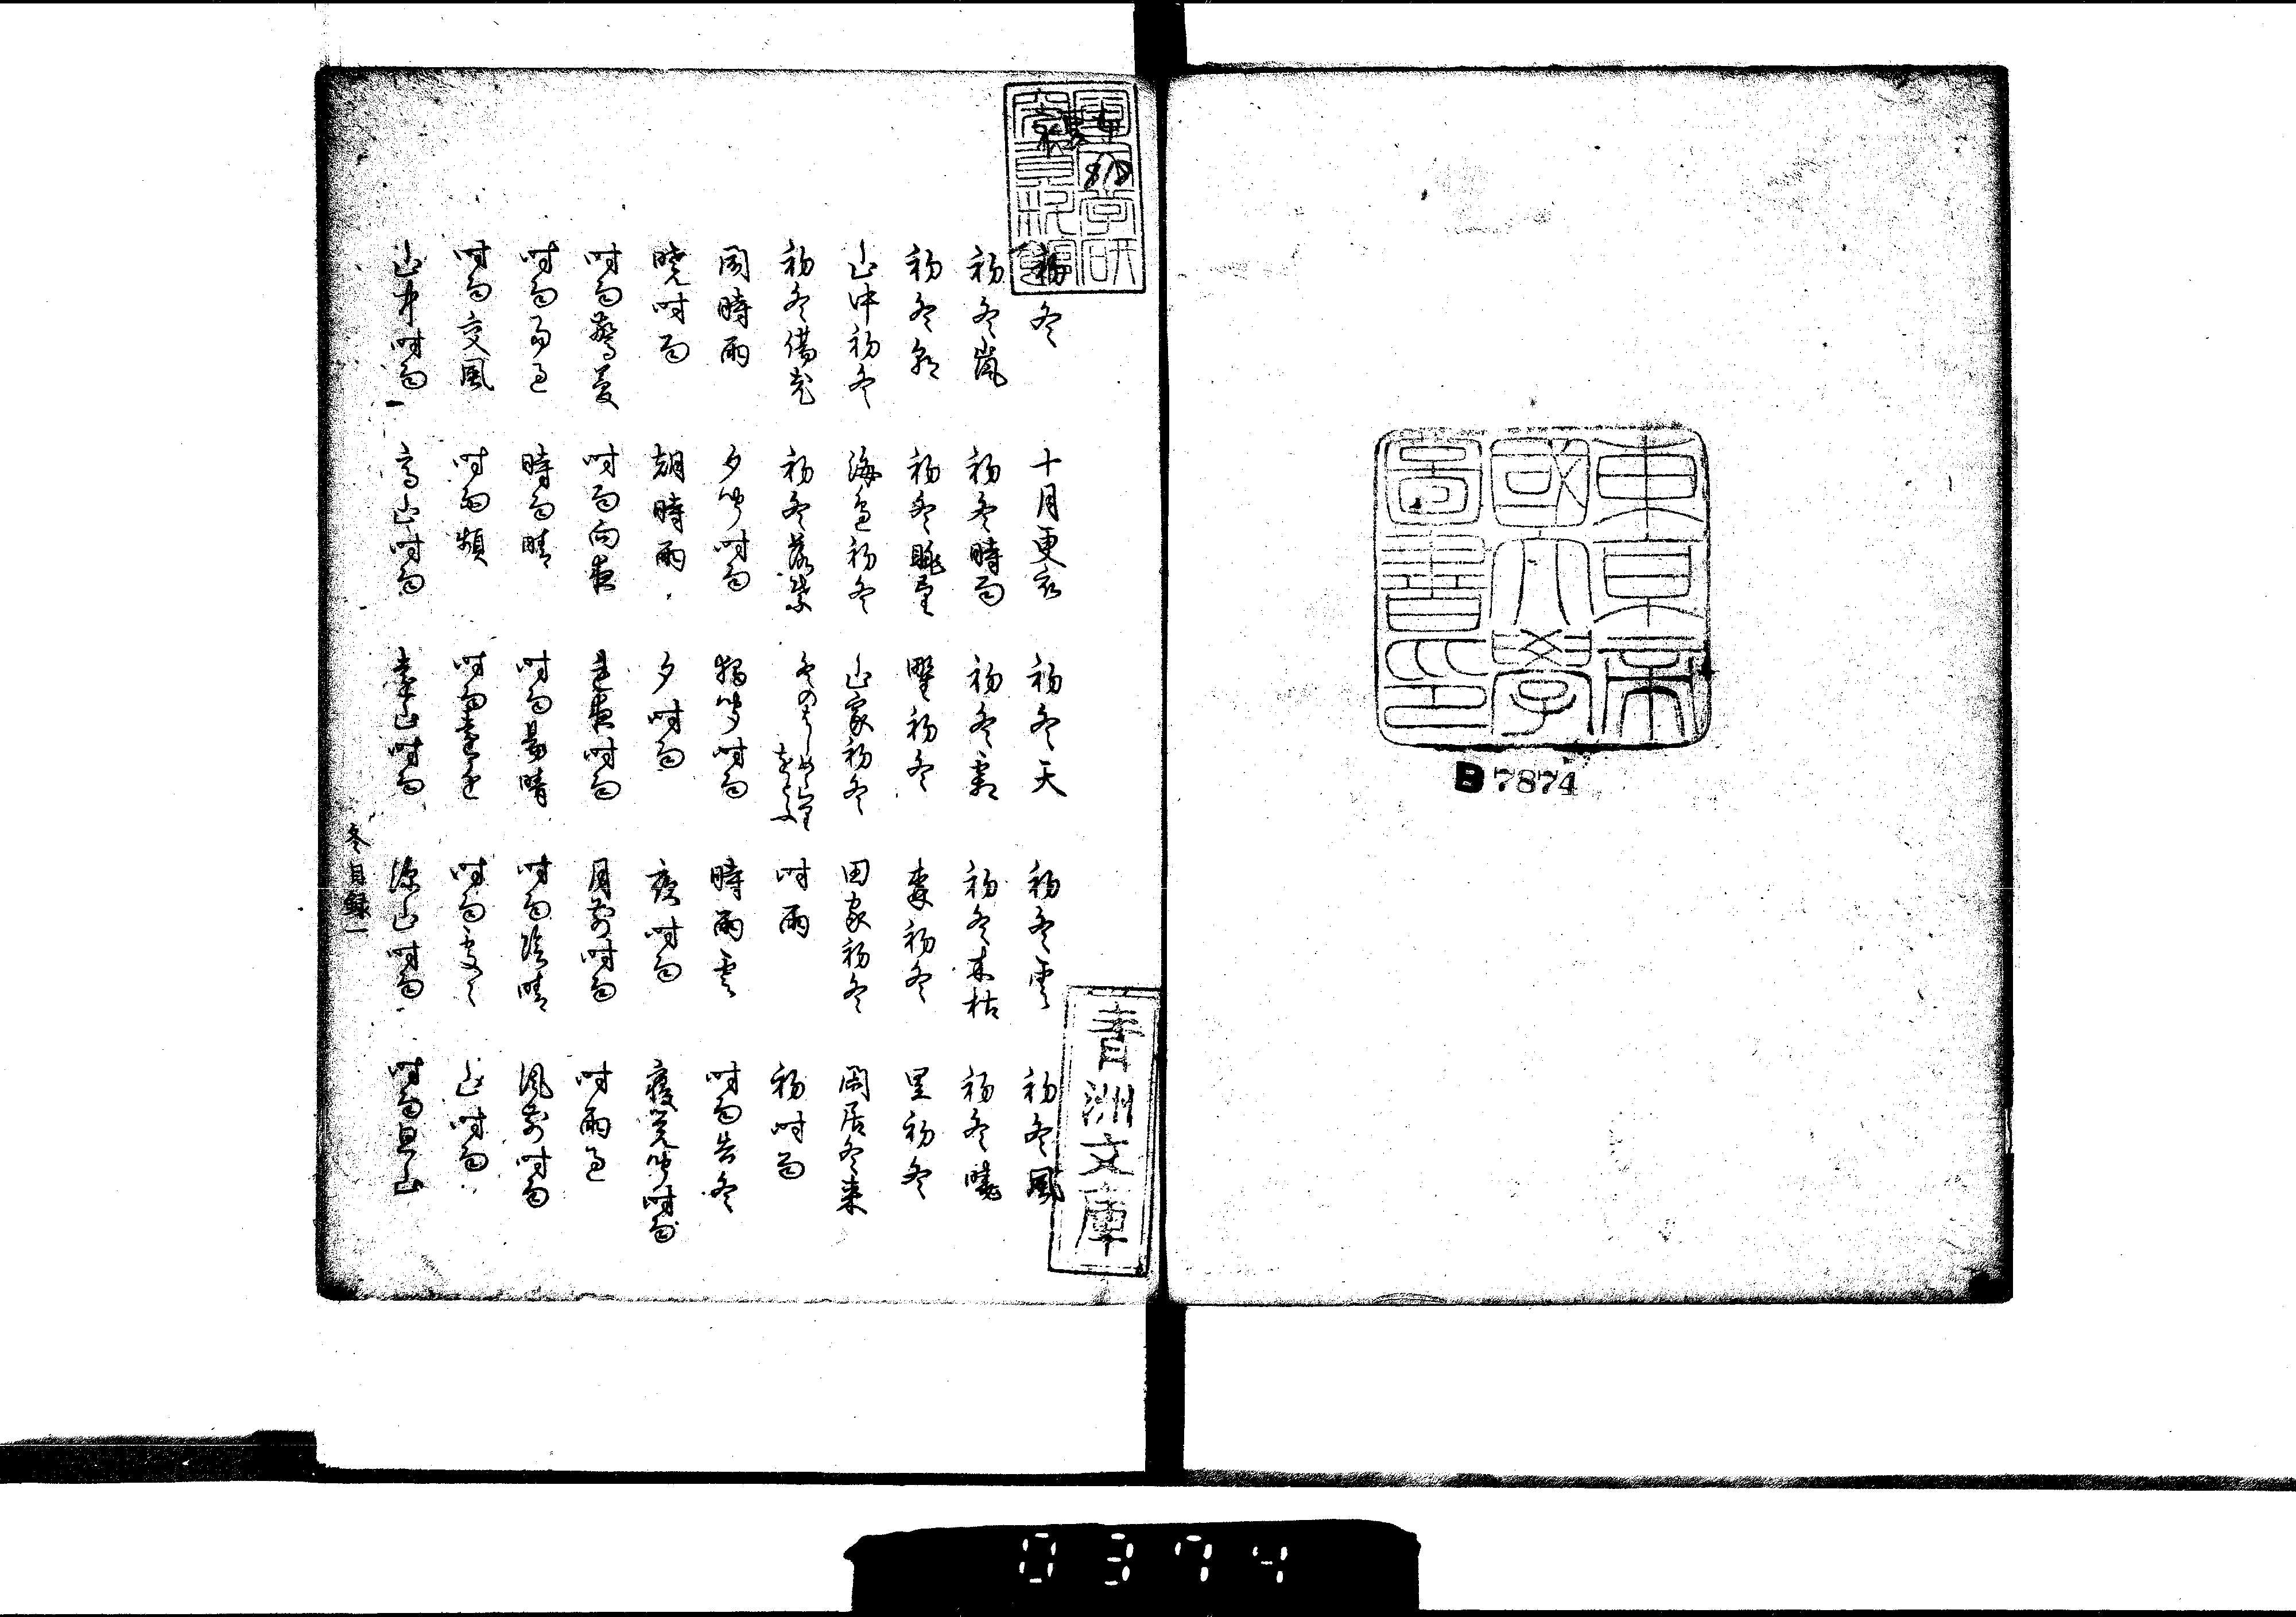 東京帝
國大學
圖書印
B7874
青洲文庫
初冬 十月更衣 初冬天 初冬雲 初冬風
初冬嵐 初冬時雨 初冬霜 初冬木枯 初冬曉
初冬朝 初冬眺望 野初冬 杜初冬 里初冬
山中初冬 海邊初冬 山家初冬 田家初冬 閑居冬来
初冬 初冬落葉 時雨 初時雨
聞時雨 夕聞時雨 獨聞時雨 時雨雲 時雨告冬
曉時雨 朝時雨 夕時雨 夜時雨 寝覚聞時雨
時雨驚夢 時雨向夜 連夜時雨 月前時雨 時雨過
時雨易過 時雨晴 時雨易晴 時雨陰晴 風前時雨
時雨交風 時雨頻 時雨遠近 時雨處々 山時雨
山中時雨 高山時雨 遠山時雨 深山時雨
冬目録 一
0374